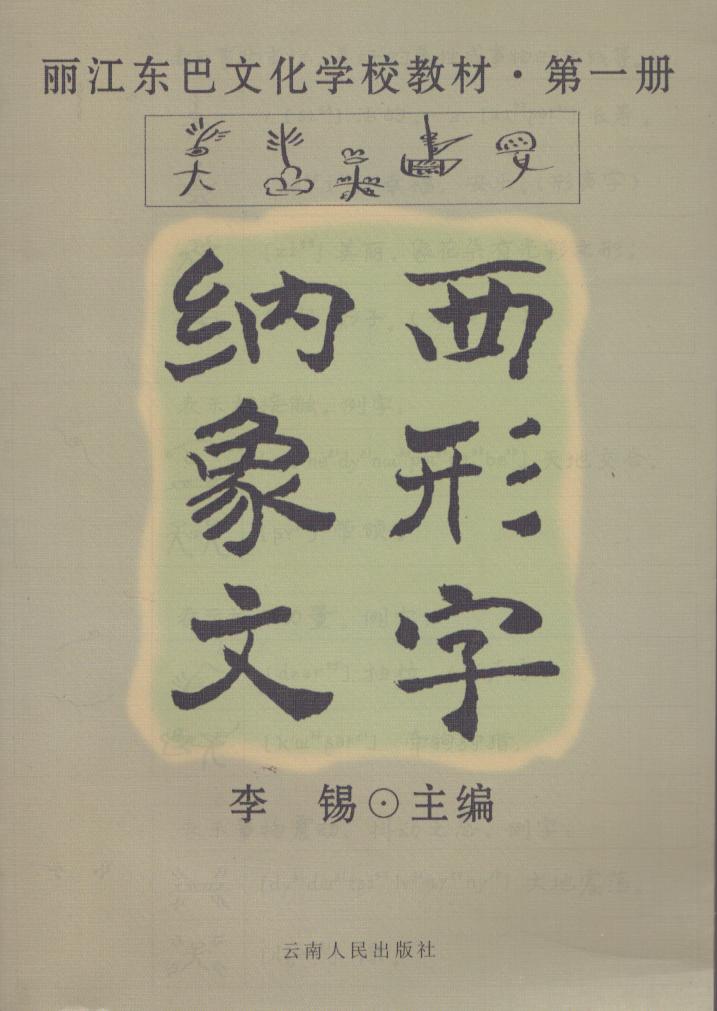 丽江东巴文化学校教材·第一册
纳西
象形
文字
李 锡⊙主编
云南人民出版社